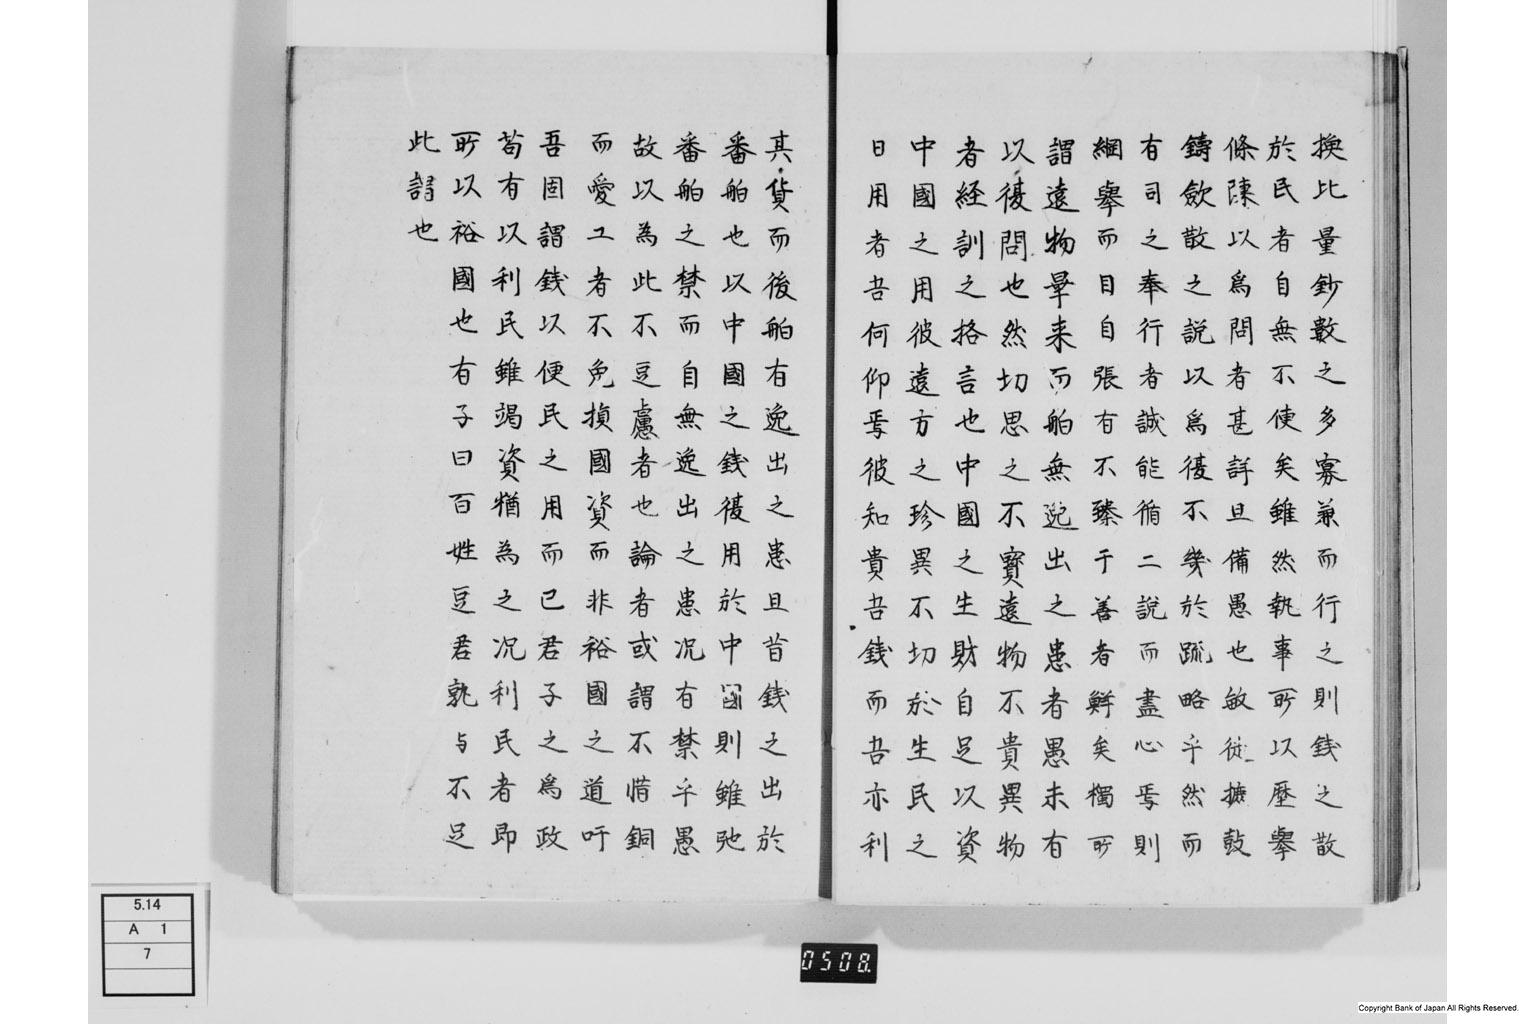 換比量鈔數之多寡兼而行之則錢之散
於民者自無不使矣雖然執事所以歷舉
條陳以爲問者甚詳且備愚也敏徒摭鼓
鑄歛散之說以爲復不幾於疏略乎然而
有司之奉行者誠能循二說而盡心焉則
綱舉而目自張有不臻于善者鮮矣獨所
謂遠物畢来而舶無逸出之患者愚未有
以復問也然切思之不寳遠物不貴異物
者経訓之格言也中國之生財自足以資
中國之用彼遠方之珍異不切於生民之
日用者吾何仰焉彼知貴吾錢而吾亦利
其貨而後舶有逸出之患且昔錢之出於
番舶也以中國之錢復用於中國則雖弛
番舶之禁而自無逸出之患况有禁乎愚
故以為此不豆慮者也論者或謂不惜銅
而愛工者不免損國資而非裕國之道吁
吾固謂錢以便民之用而已君子之爲政
苟有以利民雖竭資猶為之况利民者即
所以裕國也有子曰百姓豆君孰与不足
此謂也
5.14
A 1
7
0508.
Copyright Bank of Japan All Rights Reserved.